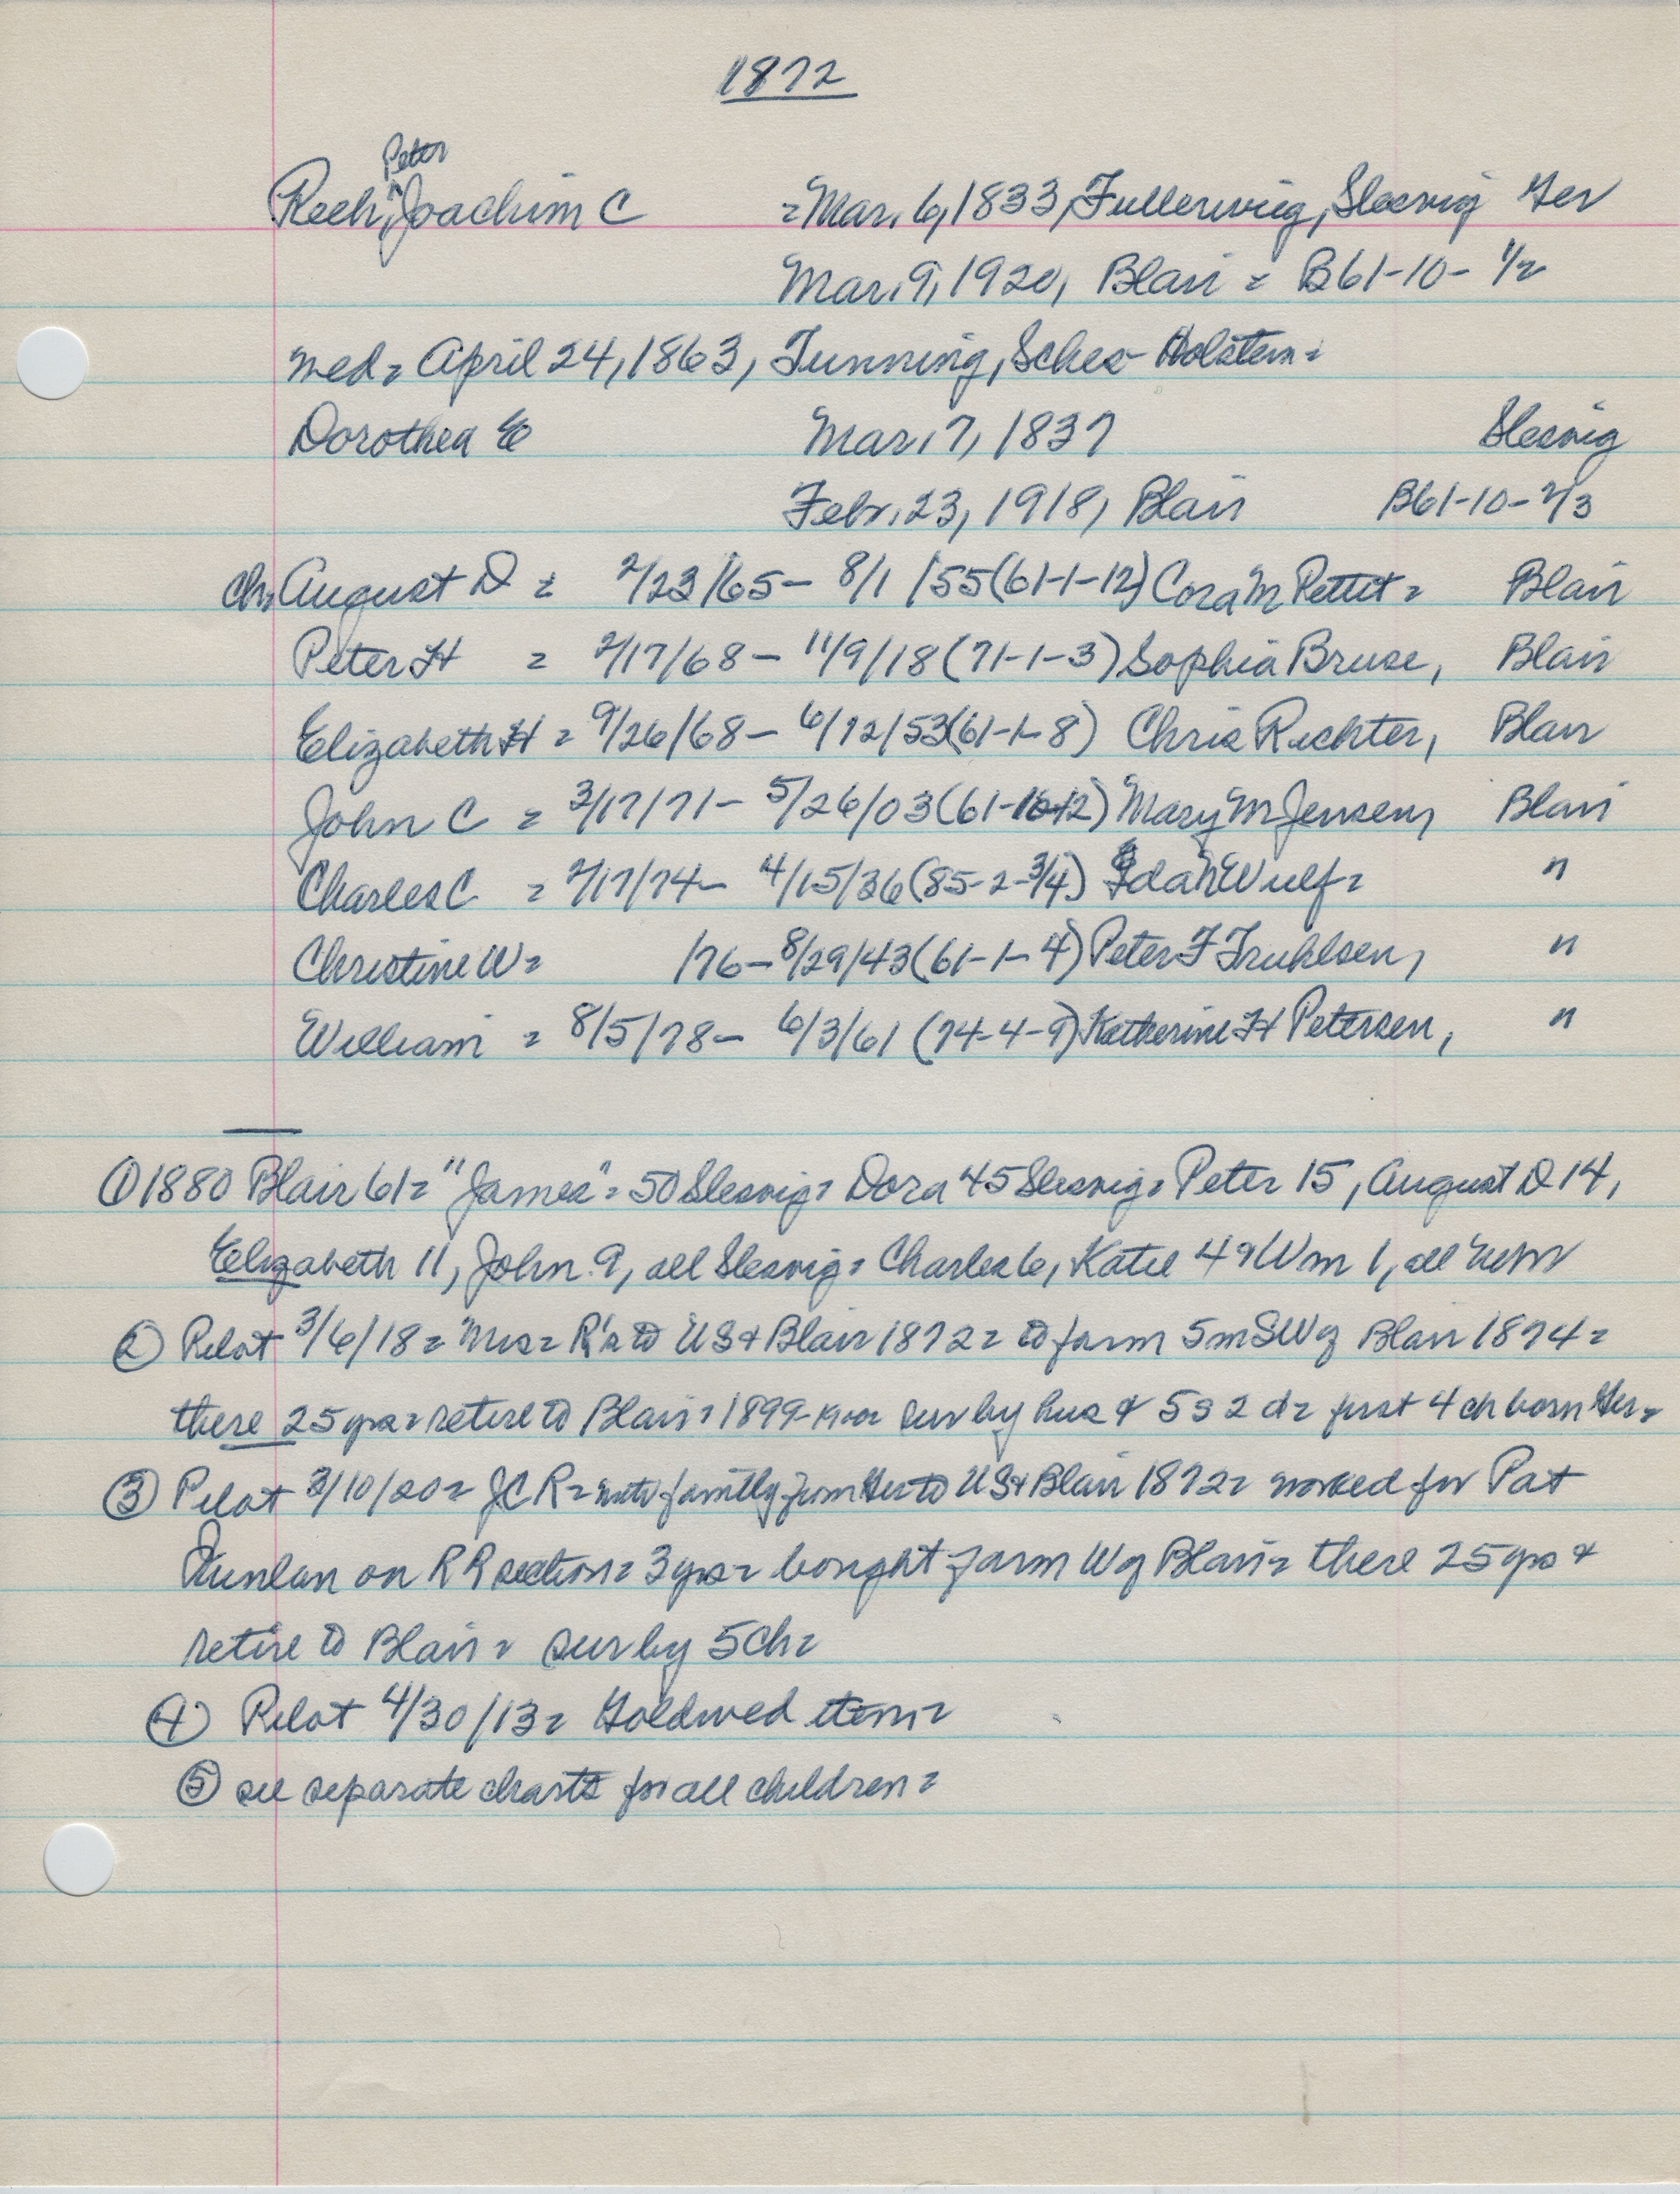 1872
Peter
Rech, Joachim C = Mar. 6, 1833, Fullerwieg, Slesvig Ger
Mar. 9, 1920, Blair = B61-10-1/2
med = April 24, 1863, Tunning, Sches-Holstein =
Dorothea E Mar. 7, 1837 Slesvig
Febr. 23, 1918, Blair B61-10-2/3
ch. August D = 2/23/65 - 8/1/55 (61-1-12) Cora M Pettit = Blair
Peter H = 2/17/68 - 11/9/18 (71-1-3) Sophia Bruse, Blair
Elizabeth H = 9/26/68 - 6/12/53 (61-1-8) Chris Richter, Blair
John C = 3/17/71 - 5/26/03 (61-10-12) Mary M Jensen, Blair
Charles C = 2/17/74 - 4/15/36 (85-2-3/4) Ida Wulf = "
Christine W = /76 - 8/29/43 (61-1-4) Peter F Truhlsen, "
William = 8/5/78 - 6/3/61 (74-4-9) Katherine H Petersen, "
① 1880 Blair 61 = "James" = 50 Slesvig = Dora 45 Slesvig = Peter 15, August D 14,
Elizabeth 11, John 9, all Slesvig = Charles 6, Katie 4 & Wm 1, all Nebr
② Pilot 3/6/18 = Mrs = R's to US & Blair 1872 = to farm 5m SW of Blair 1874 =
there 25 yrs = retire to Blair = 1899- sur by hus & 5 s 2 d = first 4 ch born Ger =
③ Pilot 3/10/20 = JC R = with family from Ger to US & Blair 1872 = worked for Pat
Dunlan on RR section = 3 yrs = bought farm W of Blair = there 25 yrs &
retire to Blair = sur by 5 ch =
④ Pilot 4/30/13 = Goldwed item =
⑤ see separate charts for all children =